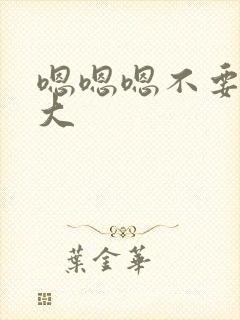 嗯嗯嗯不要
大
葉金華